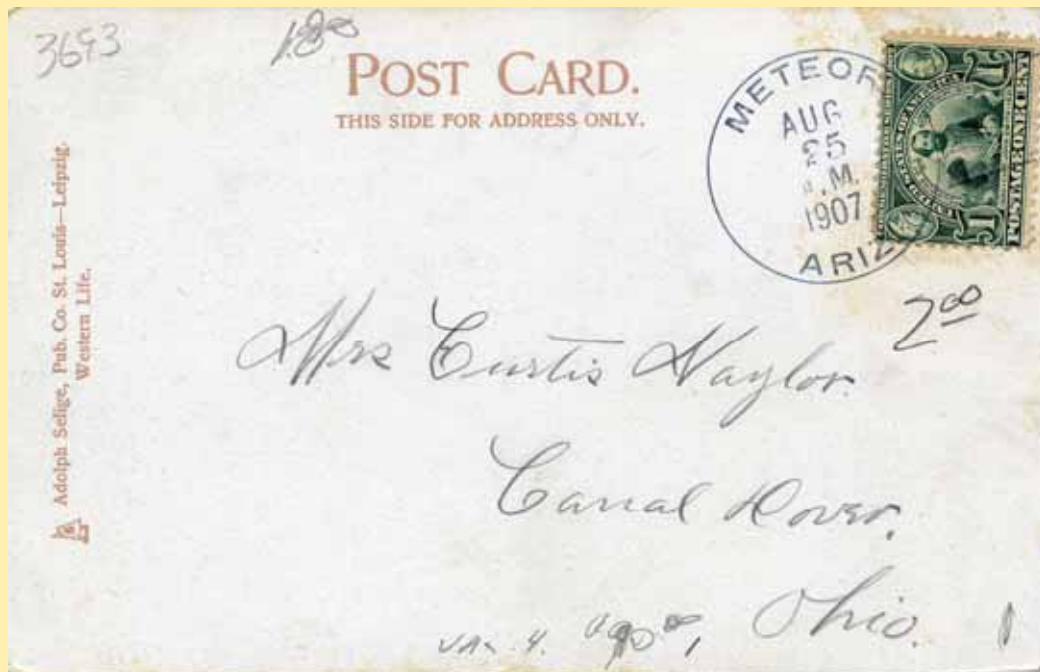 3693
POST CARD.
THIS SIDE FOR ADDRESS ONLY.
METEOR
AUG
25
.M.
1907
ARIZ
UNITED STATES OF AMERICA
1 POSTAGE ONE CENT 1
2 00
Adolph Selige, Pub. Co. St. Louis—Leipzig.
Western Life.
Mrs Curtis Naylor.
Canal Dover,
Ohio.